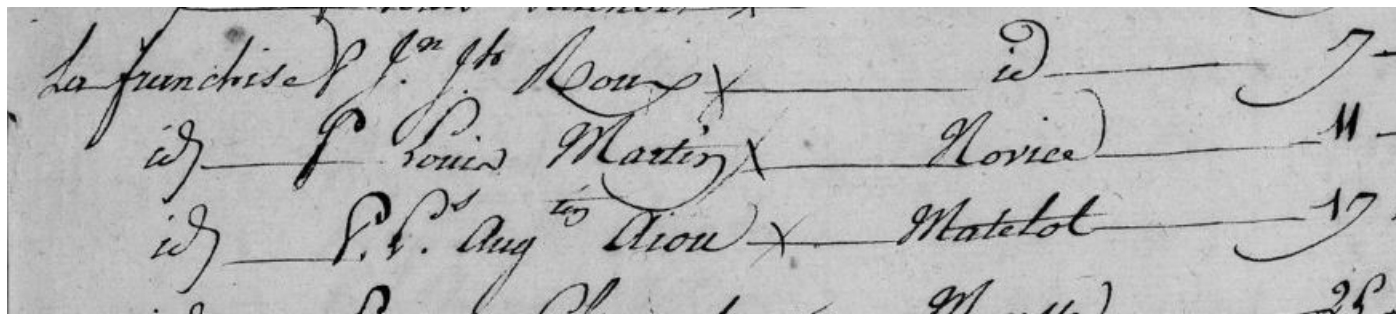 La franchise P Jn. Jh Roux x id 7
id P Louis Martin x Novice 11
id P. Ls Augtin Aiou x Matelot 17
25